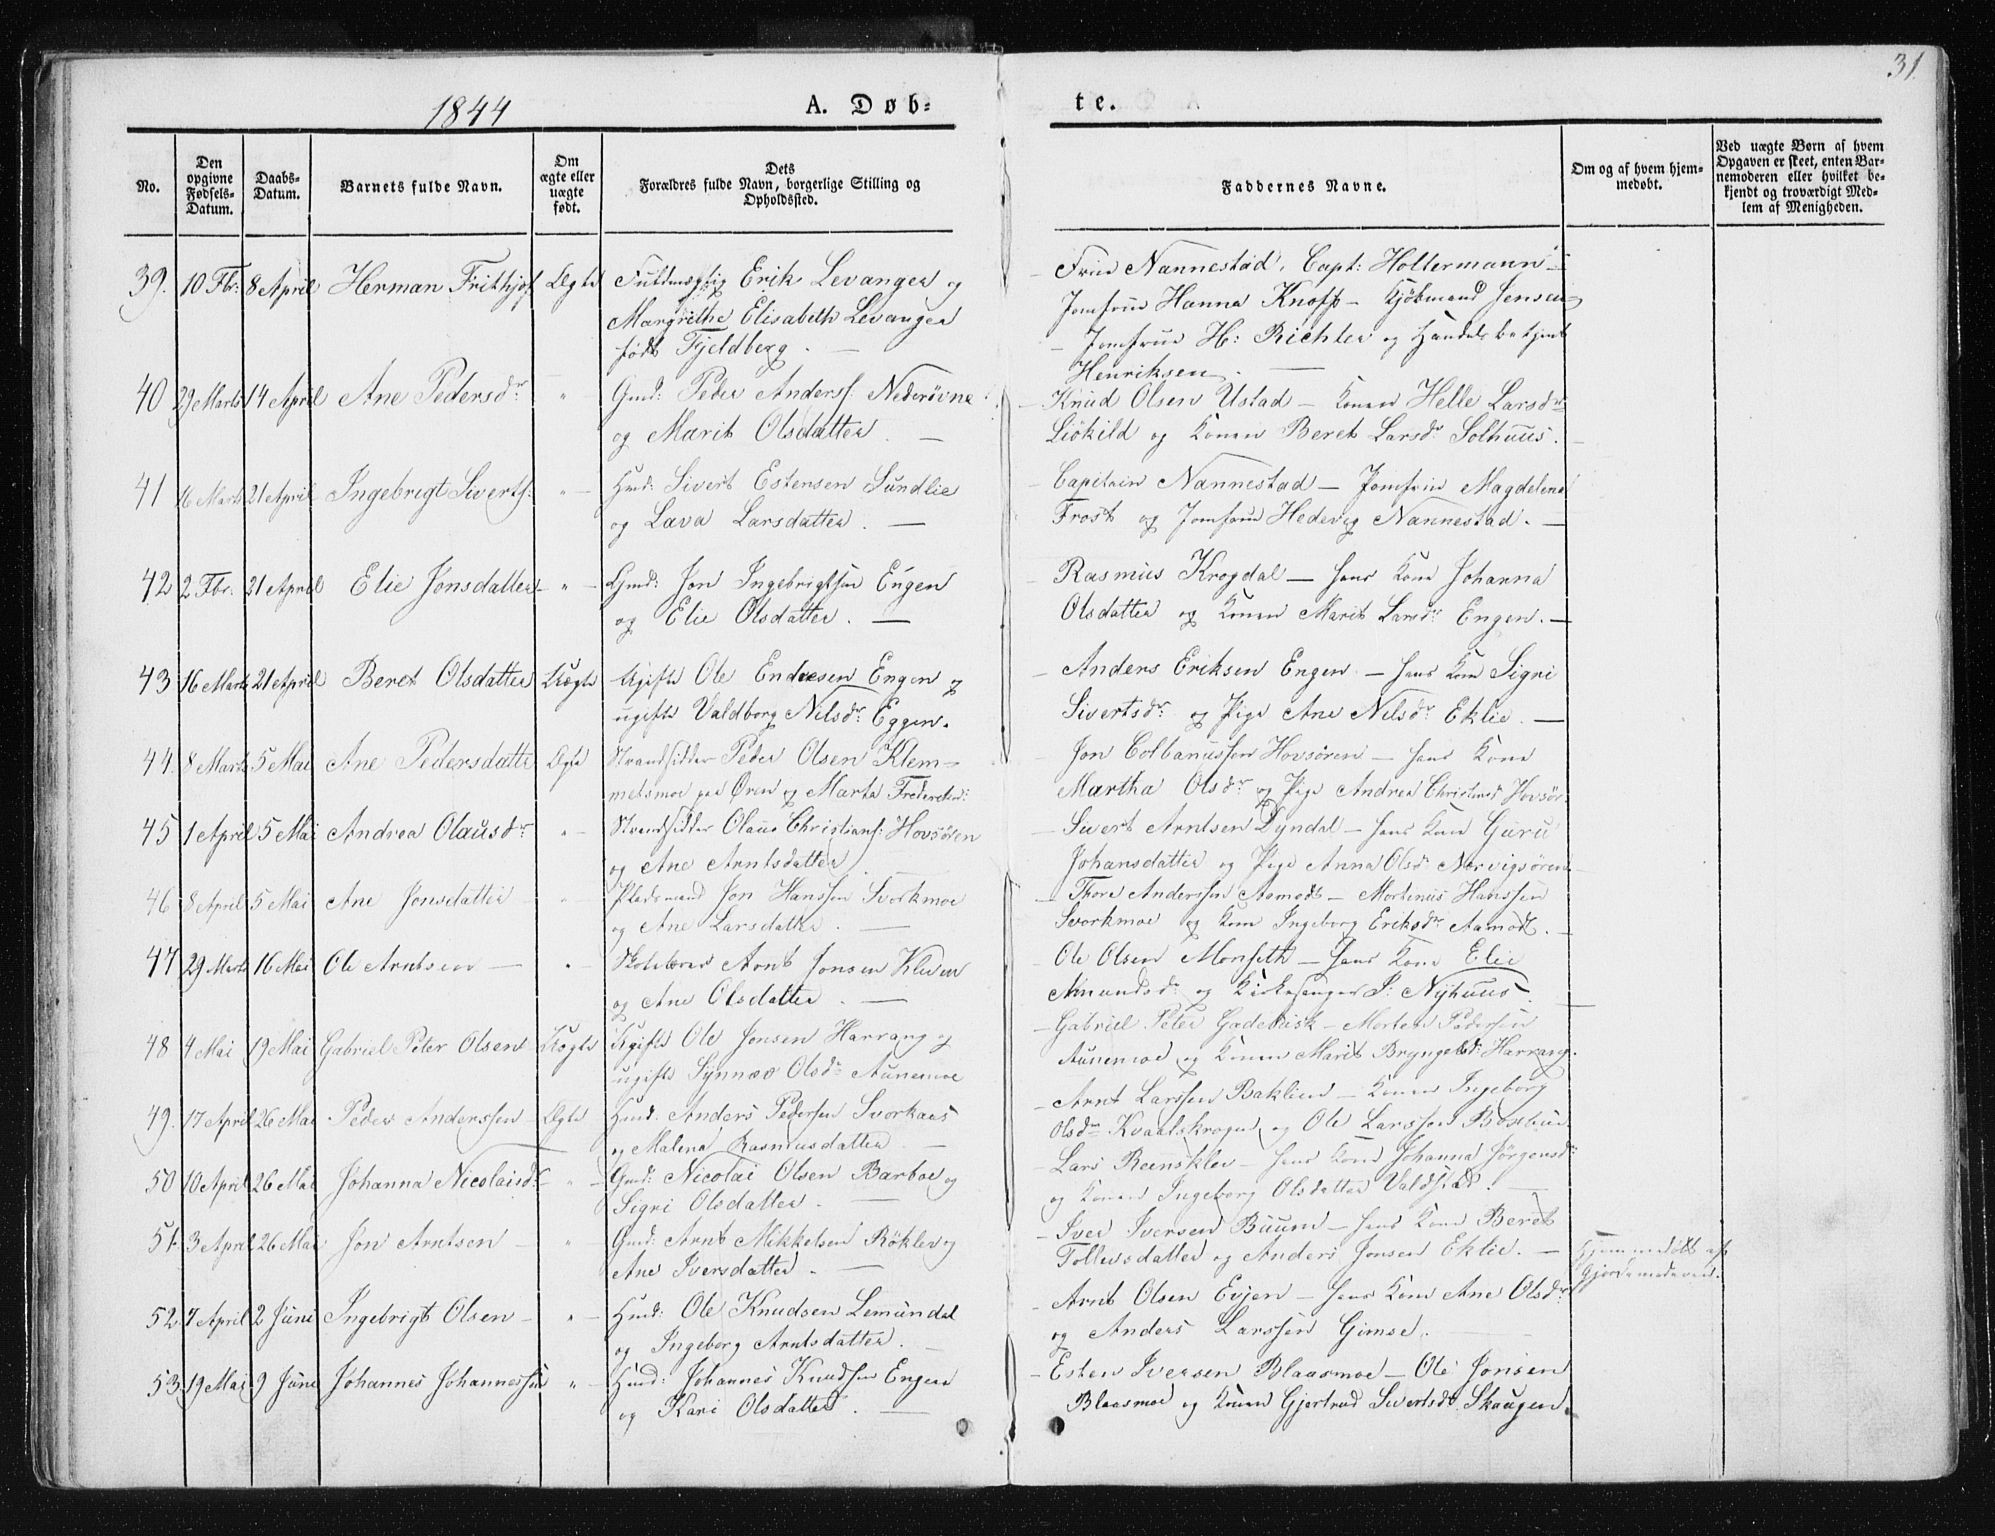 31.
1844 A. Døb- te.
No.
Den opgivne Fødsels-Datum.
Daabs-Datum.
Barnets fulde Navn.
Om ægte eller uægte født.
Dets Forældres fulde Navn, borgerlige Stilling og Opholdssted.
Faddernes Navne.
Om og af hvem hjem-medøbt.
Ved uægte Børn af hvem Opgaven er skeet, enten Bar-nemoderen eller hvilket be-kjendt og troværdigt Med-lem af Menigheden.
39. 10 Fbr: 8 April Herman Frithjof Ægte Fuldmægtig Erik Levanger og
Margrethe Elisabeth Levanger
født Fjeldberg. —
Frue Nannestad, Capt: Holtermann
Jomfrue Hanna Knoff — Kjøbmand Jensen
Jomfrue H: Richter og Handelsbetjent
Henriksen. —
40 29 Marts 14 April Ane Pedersdr " Gmd: Peder Anders: Nederøvne
og Marit Olsdatter. —
Knud Olsen Ustad — Konen Helle Larsdr
Liökild og Konen Beret Larsdr Solhuus.
41 16 Marts 21 April Ingebrigt Siverts: " Hmd: Sivert Estensen Sundlie
og Lava Larsdatter. —
Capitain Nannestad — Jomfrue Magdelena
Frost og Jomfrue Hedevig Nannestad. —
42 2 Fbr: 21 April Elie Jonsdatter " Gmd: Jon Ingebrigtsen Engen
og Elie Olsdatter. —
Rasmus Krogdal — hans Kone Johanna
Olsdatter og Konen Marit Larsdr Engen. —
43 16 Marts 21 April Beret Olsdatter Uægte Ugifte Ole Endresen Engen og
ugifte Valdborg Nilsdr Eggen.
Anders Eriksen Engen — hans Kone Sigri
Sivertsdr og Pige Ane Nilsdr Eklie. —
44. 8 Marts 5 Mai Ane Pedersdatter Ægte Strandsidder Peder Olsen Klem-
metsmoe paa Øren og Marta Frederiksd:
Jon Colbanussen Hovsören — hans Kone
Martha Olsdr og Pige Andrea Christensd Hovsör.
45 1 April 5 Mai Andrea Olausdr " Strandsidder Olaus Christians: Hovsören
og Ane Arntsdatter.
Sivert Arntsen Dyndal — hans Kone Guru
Johansdatter og Pige Anna Olsd: Norvigsören
46 8 April 5 Mai Ane Jonsdatter " Pladsmand Jon Hanssen Svorkmoe
og Ane Larsdatter. —
Thore Anderssen Aamodt — Mortenus Hanssen
Svorkmoe og Kone Ingeborg Eriksdr Aamodt. —
47 29 Marts 16 Mai Ole Arntsen — " Skolelærer Arnt Jonsen Kleven
og Ane Olsdatter. —
Ole Olsen Monseth — hans Kone Elie
Amundsdr og Kirkesanger J: Nyhuus.
48 4 Mai 19 Mai Gabriel Peter Olsen Uægte Ugifte Ole Jonsen Harrang og
ugifte Synnøv Olsdr Aunemoe
Gabriel Peter — Morten Pedersen
Aunemoe og Konen Marit Bryngelsd: Harrang.
49. 17 April 26 Mai Peder Anderssen Ægte Hmd: Anders Pedersen Svorkaas
og Malena Rasmusdatter. —
Arnt Larssen Baklien — Konen Ingeborg
Olsdr Kvaalskrogen og Ole Larssen
50 10 April 26 Mai Johanna Nicolaisdr " Gmd: Nicolai Olsen Barboe og
Sigri Olsdatter. —
Lars Reensklev — hans Kone Johanna Jörgensdr
og Konen Ingeborg Olsdatter Valdstad. —
51. 3 April 26 Mai Jon Arntsen — " Gmd: Arnt Mikkelsen Röklev og
Ane Iversdatter. —
Iver Iversen Buum — hans Kone Beret
Tollevsdatter og Anders Jonsen Eklie. —
Hjemmedöbt af
Gjordemoderen.
52 7 April 2 Juni Ingebrigt Olsen — " Hmd: Ole Knudsen Lemundal
og Ingeborg Arntsdatter.
Arnt Olsen Evjen — hans Kone Ane Olsdr
og Anders Larssen Gimse.
53. 19 Mai 9 Juni Johannes Johannessen " Hmd: Johannes Knudsen Engen
og Kari Olsdatter. —
Esten Iversen Blaasmoe — Ole Jonsen
Blaasmoe og Konen Gjertrud Sivertsdr Skaugen.